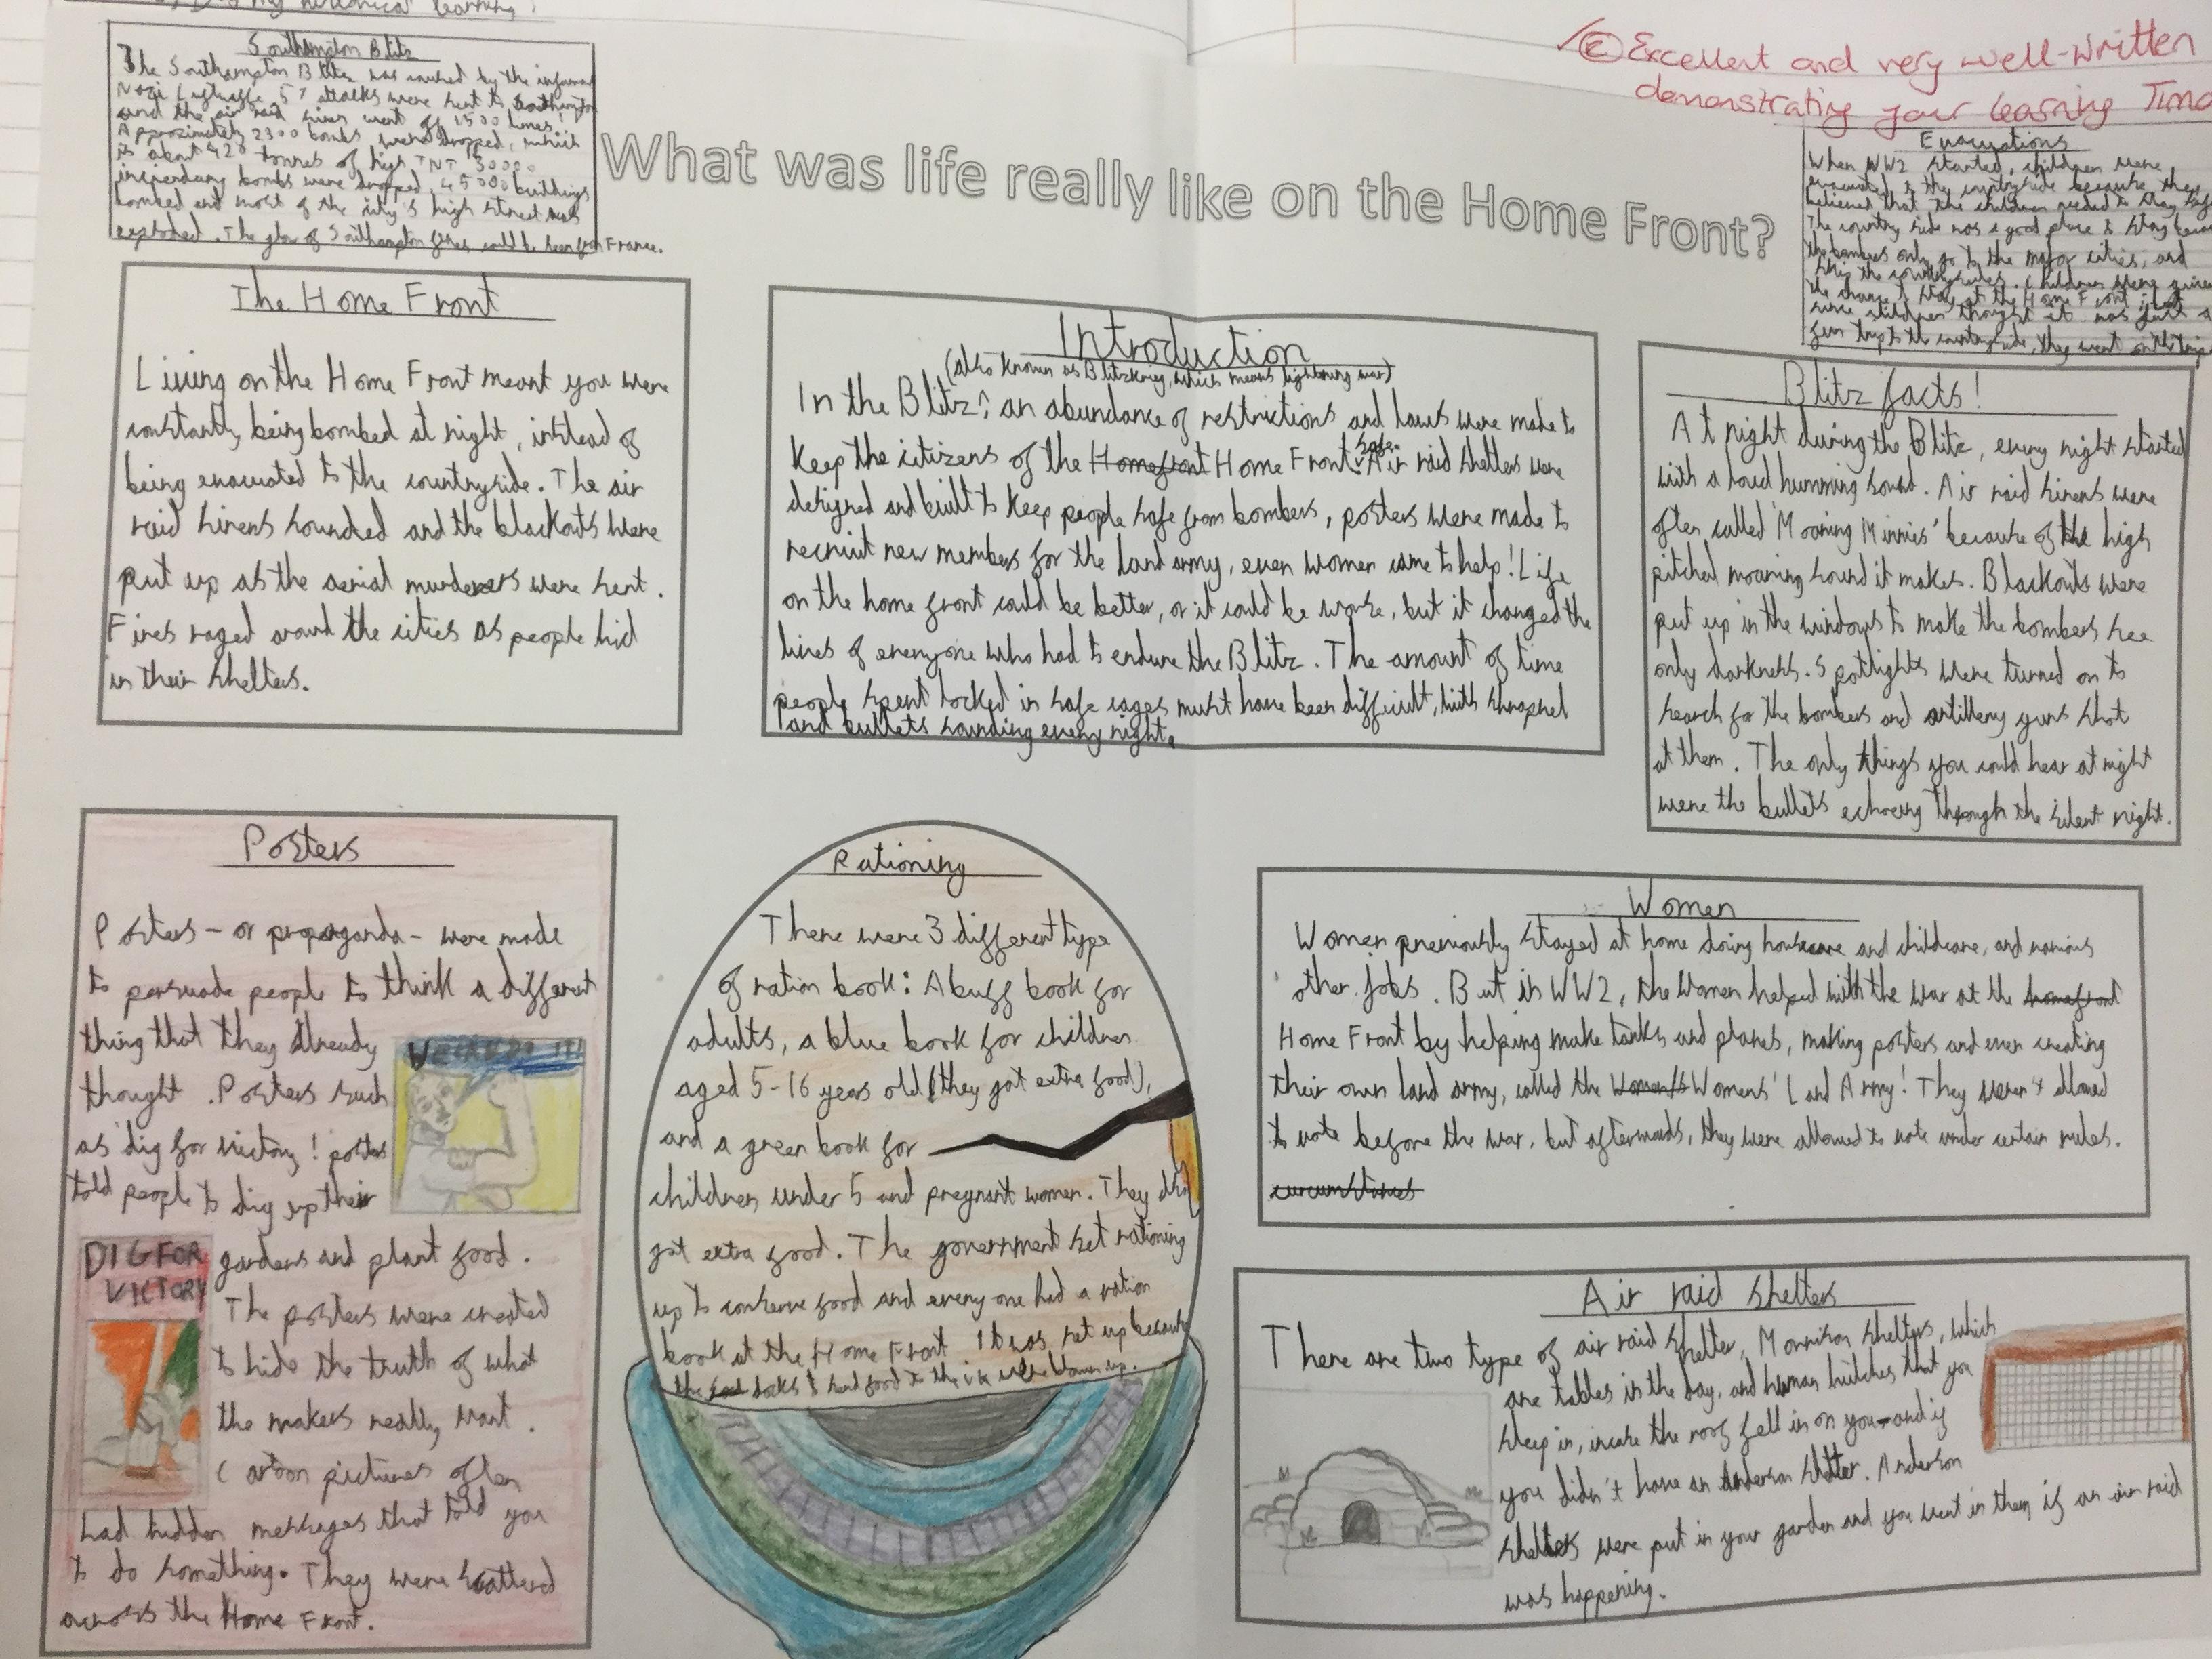 my historical learning!
Southampton Blitz
The Southampton Blitz was caused by the infamous
Nazi Luftwaffe. 57 attacks were sent to Southampton
and the air raid sirens went of 1500 times!
Approximately 2300 bombs were dropped, which
is about 420 tonnes of high TNT 30000
incendiary bombs were dropped, 45000 buildings
bombed and most of the city's high street was
exploded. The glow of Southampton fires could be seen from France.
Excellent and very well-written
demonstrating your learning
What was life really like on the Home Front?
Evacuations
When WW2 started, children were
evacuated to the countryside because they
believed that the children needed to stay safe
The country side was a good place to stay because
the bombers only go to the major cities, and
skip the countrysides. Children were given
the chance to stay at the Home Front, but
since children thought it was just a
fun trip to the countryside, they went on the trip
The Home Front
Living on the Home Front meant you were
constantly being bombed at night, instead of
being evacuated to the countryside. The air
raid sirens sounded and the blackouts were
put up as the aerial murderers were sent.
Fires raged around the cities as people hid
in their shelters.
Introduction
(also known as Blitzkrieg, which means lightning war)
In the Blitz, an abundance of restrictions and laws were made to
keep the citizens of the Homefront Home Front safe. Air raid shelters were
designed and built to keep people safe from bombers, posters were made to
recruit new members for the land army, even women came to help! Life
on the home front could be better, or it could be worse, but it changed the
lives of everyone who had to endure the Blitz. The amount of time
people spent locked in safe cages must have been difficult, with shrapnel
and bullets sounding every night.
Blitz facts!
At night during the Blitz, every night started
with a loud humming sound. Air raid sirens were
often called 'Moaning Minnies' because of the high
pitched moaning sound it makes. Blackouts were
put up in the windows to make the bombers see
only darkness. Spotlights were turned on to
search for the bombers and artillery guns shot
at them. The only things you could hear at night
were the bullets echoing through the silent night.
Posters
Posters - or propaganda - were made
to persuade people to think a different
thing that they already
thought. Posters such
as 'dig for victory! posters
told people to dig up their
gardens and plant food.
The posters were created
to hide the truth of what
the makers really want.
Cartoon pictures often
had hidden messages that told you
to do something. They were scattered
across the Home Front.
WE CAN DO IT!
DIG FOR
VICTORY
Rationing
There were 3 different type
of ration book: A buff book for
adults, a blue book for children
aged 5-16 years old (they got extra food),
and a green book for
children under 5 and pregnant women. They also
got extra food. The government set rationing
up to conserve food and every one had a ration
book at the Home Front It was set up because
the docks to send food to the UK were blown up.
Women
Women previously stayed at home doing housecare and childcare, and various
other jobs. But in WW2, the Women helped with the war at the homefront
Home Front by helping make tanks and planes, making posters and even creating
their own land army, called the Women's Womens' Land Army! They weren't allowed
to vote before the war, but afterwards, they were allowed to vote under certain rules.
curcumstances
Air raid shelters
There are two type of air raid shelter, Morrison shelters, which
are tables in the day, and human hutches that you
sleep in, incase the roof fell in on you and if
you didn't have an Anderson shelter. Anderson
shelters were put in your garden and you went in them if an air raid
was happening.